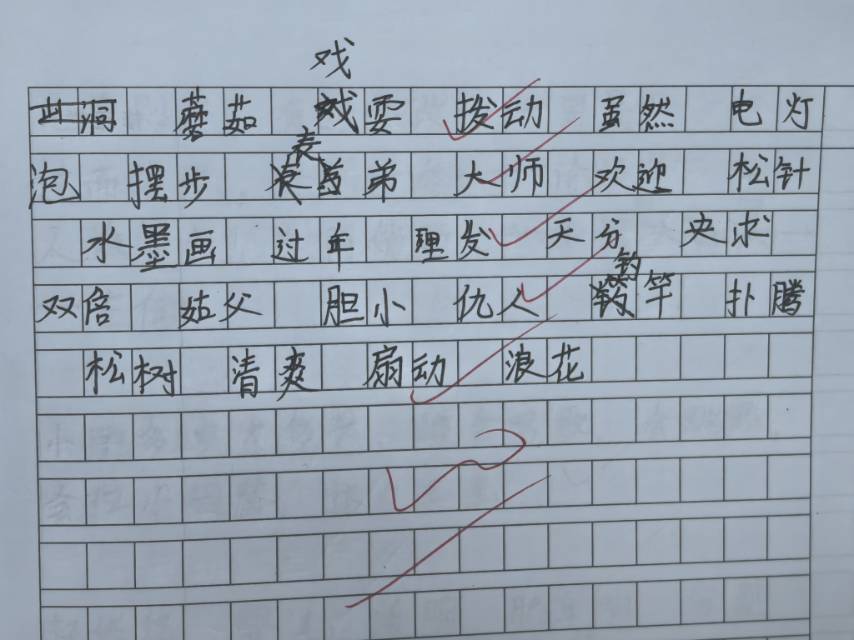 戏
洞 蘑茹 戏耍 拨动 虽然 电灯
表
泡 摆步 兄弟 大师 欢迎 松针
水墨画 过年 理发 天分 央求
钓
双倍 姑父 胆小 仇人 钓竿 扑腾
松树 清爽 扇动 浪花